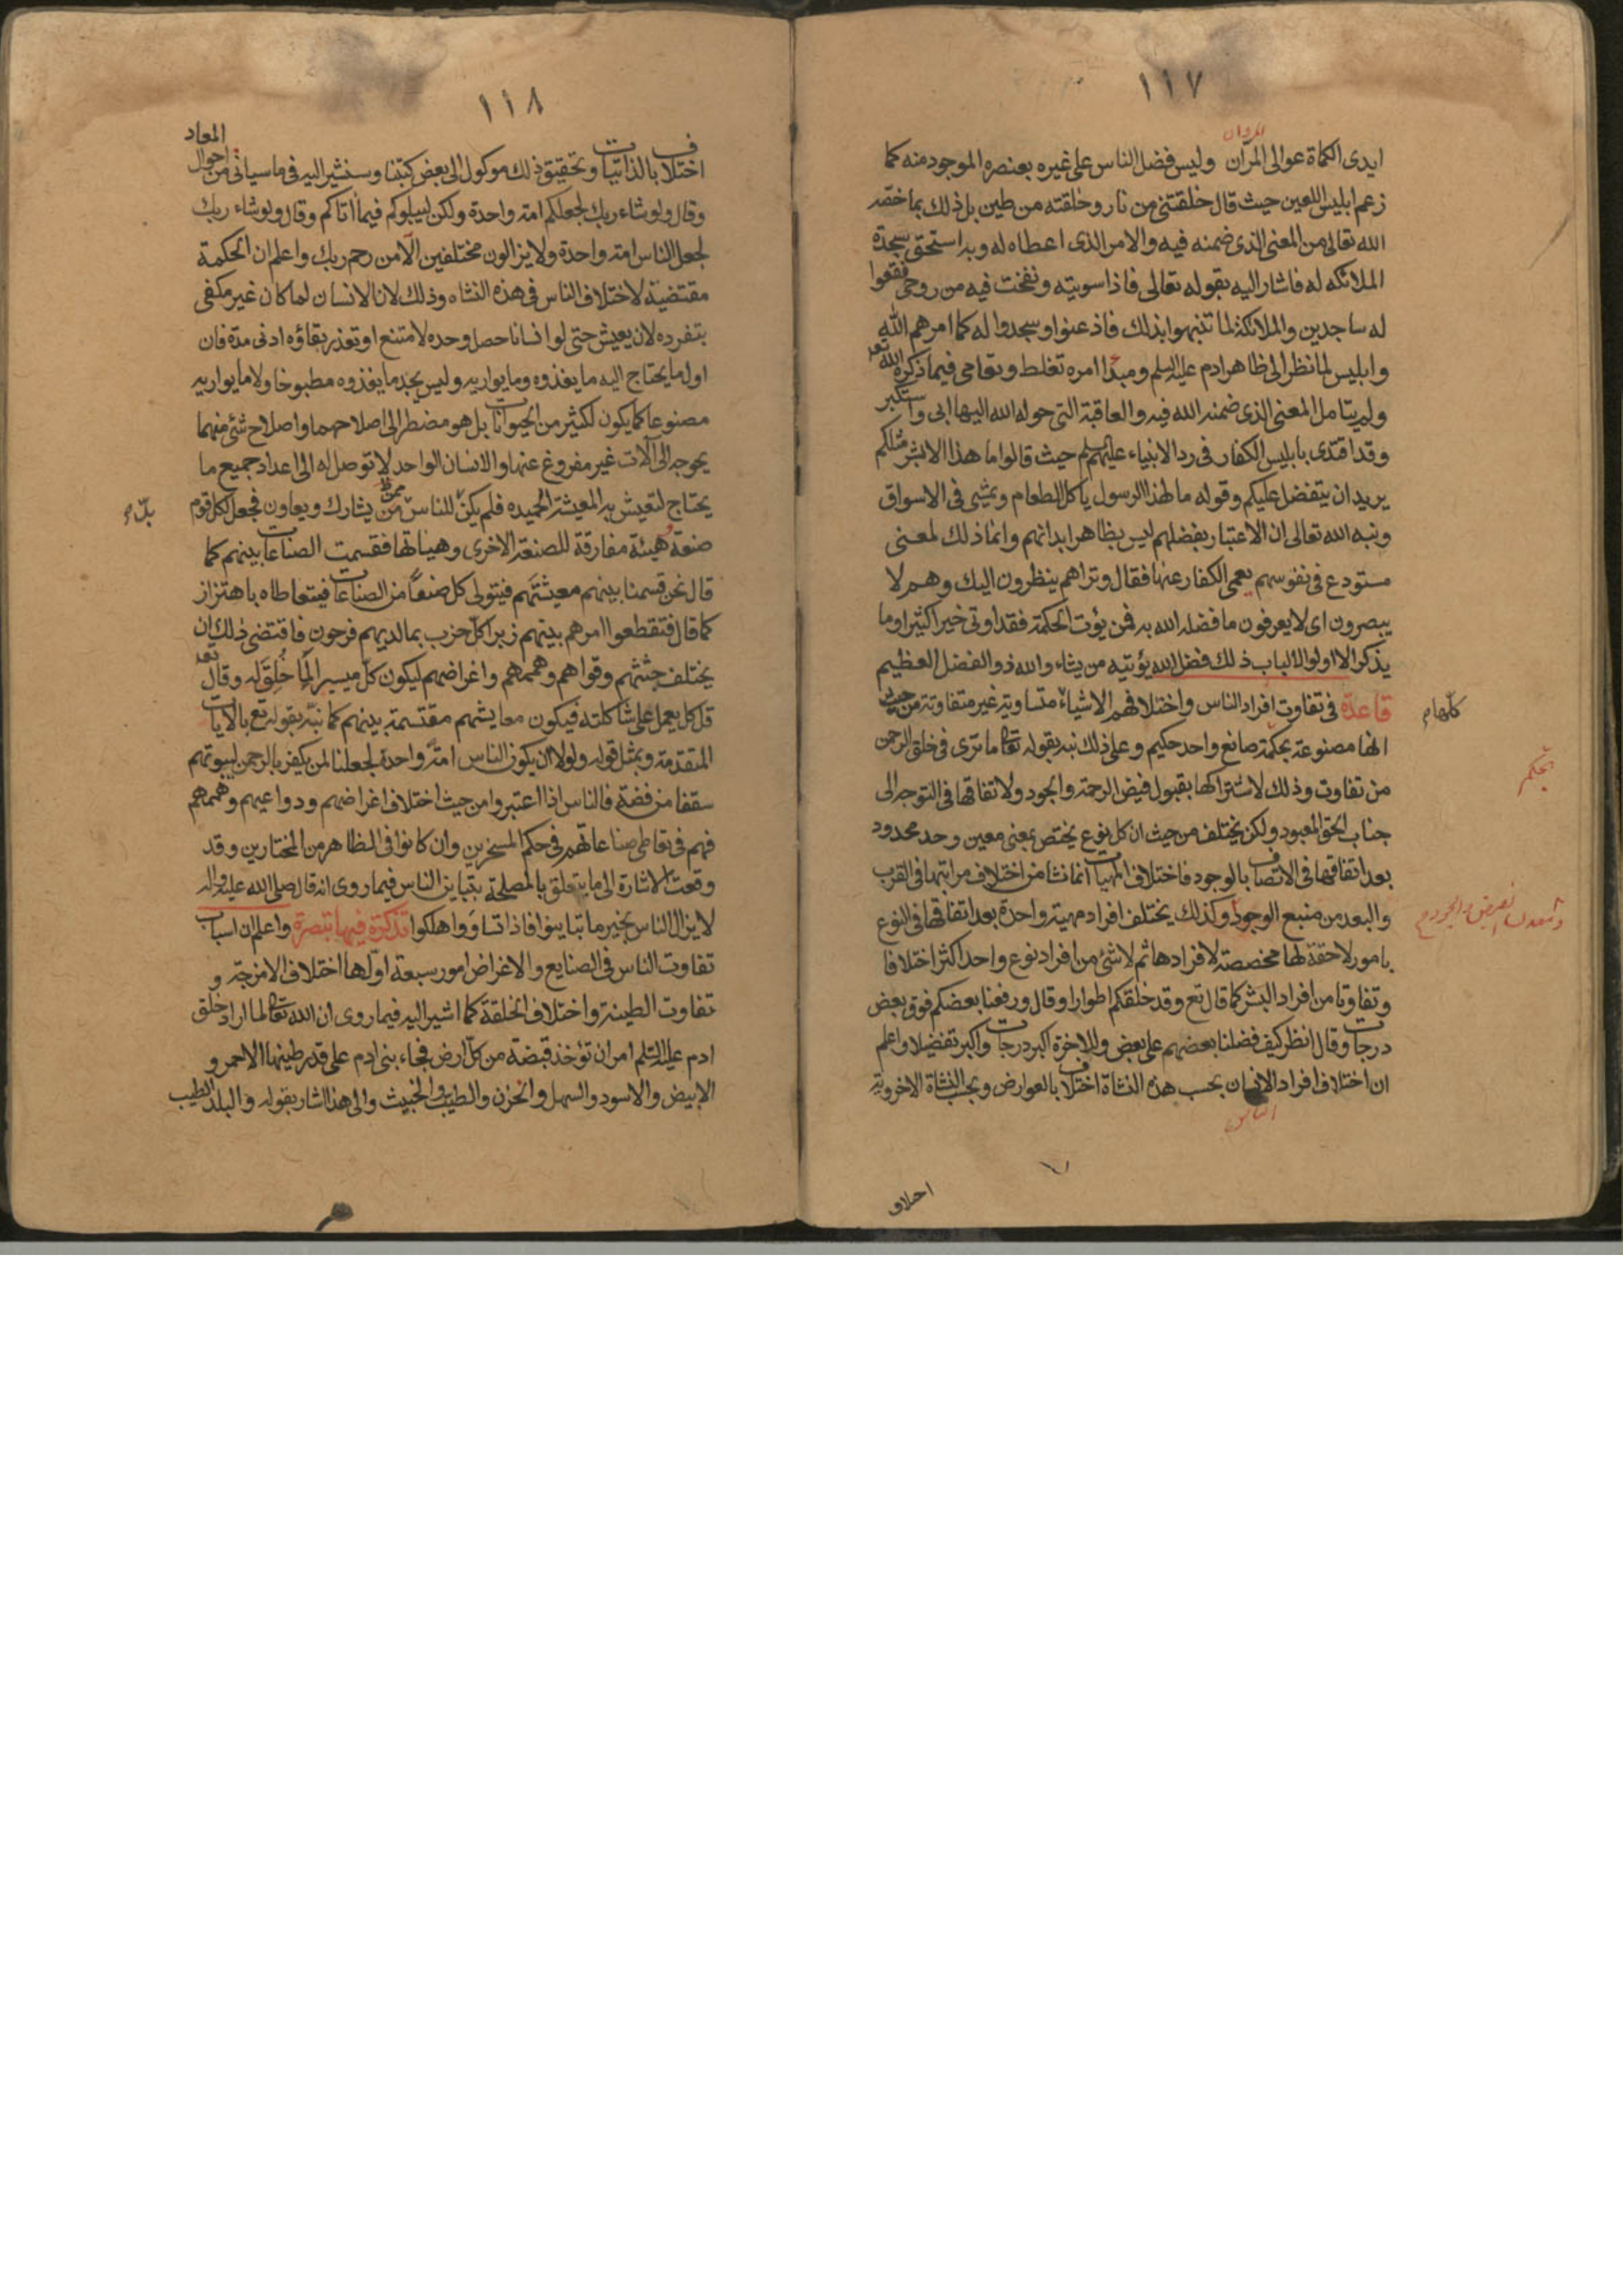 ١١٧
ايدى الكماة عوالى المرّان وليس فضل الناس على غيره بعنصره الموجود منه كما
زعم ابليس اللعين حيث قال خلقتنى من نار وخلقته من طين بل ذلك بما خصّه
الله تعالى من المعنى الذى ضمنه فيه والامر الذى اعطاه له وبه استحق سجدة
الملائكه له فاشار اليه بقوله تعالى فاذا سويته ونفخت فيه من روحى فقعوا
له ساجدين والملائكة لما تنبهوا بذلك فاذعنوا وسجدوا له كما امرهم الله
وابليس لما نظر الى ظاهر ادم عليه السلم ومبدا امره تغلط وتعامى فيما ذكره الله تعه
ولم يتامل المعنى الذى ضمنه الله فيه والعاقبة التى حوله الله اليها ابى واستكبر
وقد اقتدى بابليس الكفار فى رد الانبياء عليهم السلم حيث قالوا ما هذا الا بشر مثلكم
يريد ان يتفضل عليكم وقوله ما لهذا الرسول ياكل الطعام ويمشى فى الاسواق
ونبه الله تعالى ان الاعتبار بفضلهم ليس بظاهر ابدانهم وانما ذلك لمعنى
مستودع فى نفوسهم يعمى الكفار عنها فقال وتراهم ينظرون اليك وهم لا
يبصرون اى لا يعرفون ما فضله الله به فمن يؤت الحكمة فقد اوتى خيرا كثيرا وما
يذكر الا اولو الالباب ذلك فضل الله يؤتيه من يشاء والله ذو الفضل العظيم
قاعدة فى تفاوت افراد الناس واختلافهم الاشياء متساوية غير متفاوتة من حيث
كلها م
انها مصنوعة بحكمة صانع واحد حكيم وعلى ذلك نبه بقوله تعالى ما ترى فى خلق الرحمن
من تفاوت وذلك لاشتراكها بقبول فيض الرحمة والجود ولاتفاقها فى التوجه الى
جناب الحق المعبود ولكن يختلف من حيث ان كل نوع يختص بمعنى معين وحد محدود
بعد اتفاقها فى الاتصاف بالوجود فاختلاف المهيات انما نشا من اختلاف مراتبها فى القرب
والبعد من منبع الوجود وكذلك يختلف افراد مهية واحدة بعد اتفاقها فى النوع
بامور لاحقة لها مخصصة لافرادها ثم لا شئ من افراد نوع واحد اكثر اختلافا
وتفاوتا من افراد البشر كما قال تع وقد خلقكم اطوارا وقال ورفعنا بعضكم فوق بعض
درجات وقال انظر كيف فضلنا بعضهم على بعض وللاخرة اكبر درجات واكبر تفضيلا واعلم
ان اختلاف افراد الانسان بحسب هذه النشاة اختلاف بالعوارض وبحسب النشاة الاخروية
١١٨
اختلاف بالذاتيات وتحقيق ذلك موكول الى بعض كتبنا وسنشير اليه فى ما سياتى من احوال المعاد
وقال ولو شاء ربك لجعلكم امة واحدة ولكن ليبلوكم فيما اتاكم وقال ولو شاء ربك
لجعل الناس امة واحدة ولا يزالون مختلفين الا من رحم ربك واعلم ان الحكمة
مقتضية لاختلاف الناس فى هذه النشاه وذلك لان الانسان لما كان غير مكفى
بتفرده لان يعيش حتى لو انسانا حصل وحده لامتنع او تعذر بقاؤه ادنى مدة فان
اول ما يحتاج اليه ما يغذوه وما يواريه وليس يجد ما يغذوه مطبوخا ولا ما يواريه
مصنوعا كما يكون لكثير من الحيوانات بل هو مضطر الى اصلاحهما واصلاح شئ منهما
يحوجه الى آلات غير مفروغ عنها والانسان الواحد لا توصل له الى اعداد جميع ما
يحتاج لتعيش به المعيشة الحميده فلم يكن للناس من يشارك ويعاون فجعل لكل قوم
بد م
صنعة وهيئة مفارقة للصنعة الاخرى وهيئاتها فقسمت الصناعات بينهم كما
قال نحن قسمنا بينهم معيشتهم فيتولى كل صنفا من الصناعات فيتعاطاه باهتزاز
كما قال فتقطعوا امرهم بينهم زبرا كل حزب بما لديهم فرحون فاقتضى ذلك ان
يختلف جثثهم وقواهم وهممهم واغراضهم ليكون كل ميسرا لما خلق له وقال تعه
قل كل يعمل على شاكلته فيكون معايشهم مقتسمة بينهم كما نبه بقوله تع بالايات
المتقدمة وبمثل قوله ولولا ان يكون الناس امة واحدة لجعلنا لمن يكفر بالرحمن لبيوتهم
سقفا من فضة فالناس اذا اعتبروا من حيث اختلاف اغراضهم ودواعيهم وهممهم
فهم فى تعاطى صناعاتهم فى حكم المسخرين وان كانوا فى الظاهر من المختارين وقد
وقعت الاشارة الى ما يتعلق بالمصلحة بتباين الناس فيما روى انه قال صلى الله عليه واله
لا يزال الناس بخير ما تباينوا فاذا تساووا هلكوا تذكرة فيها تبصرة واعلم ان اسباب
تفاوت الناس فى الصنايع والاغراض امور سبعة اولها اختلاف الامزجة و
تفاوت الطينة واختلاف الخلقة كما اشير اليه فيما روى ان الله تعالى لما اراد خلق
ادم عليه السلم امر ان تؤخذ قبضة من كل ارض فجاء بنى ادم على قدر طينها الاحمر و
الابيض والاسود والسهل والحزن والطيب والخبيث والى هذا اشار بقوله والبلد الطيب